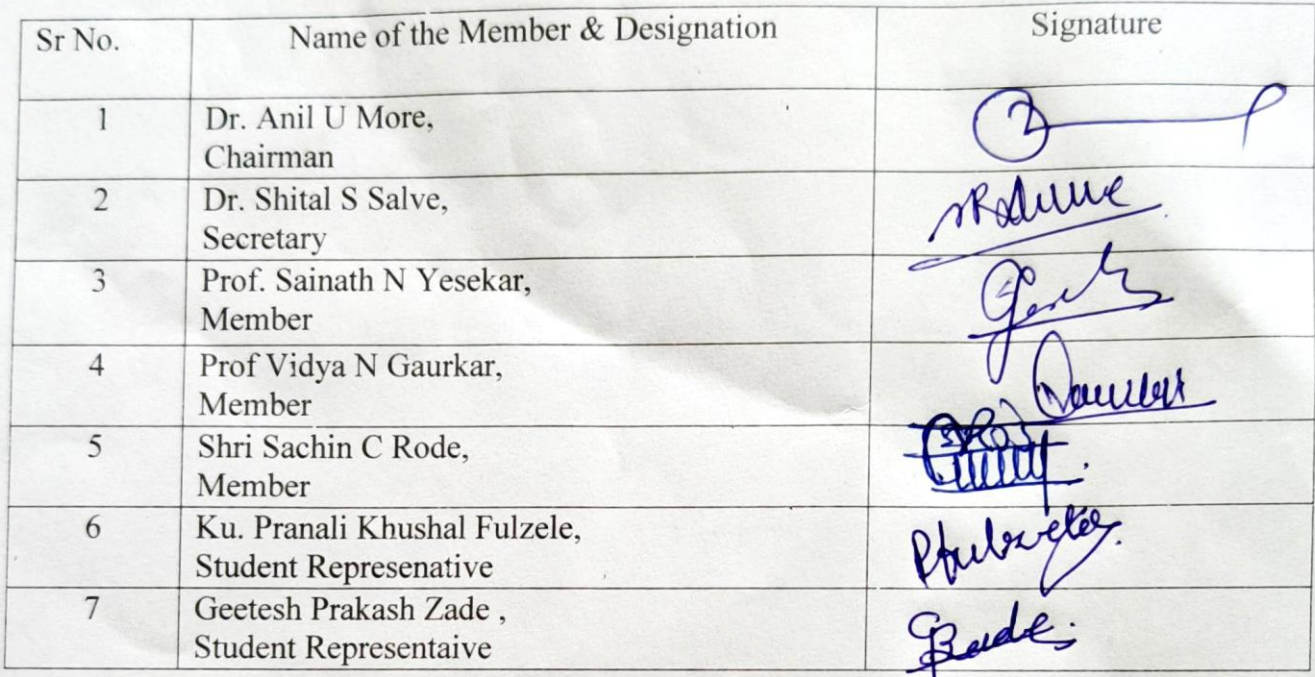 Sr No. Name of the Member & Designation Signature
1 Dr. Anil U More,
Chairman
2 Dr. Shital S Salve,
Secretary
3 Prof. Sainath N Yesekar,
Member
4 Prof Vidya N Gaurkar,
Member
5 Shri Sachin C Rode,
Member
6 Ku. Pranali Khushal Fulzele,
Student Represenative
7 Geetesh Prakash Zade ,
Student Representaive